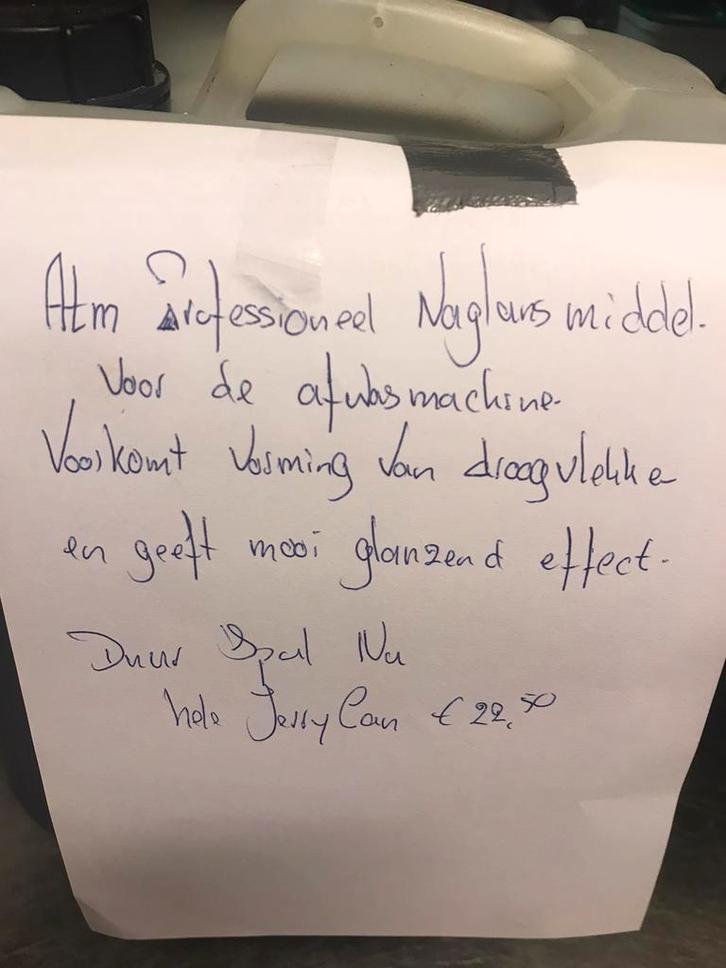 Atm Professioneel Naglans middel.
Voor de afwasmachine.
Voorkomt vorming van droogvlekke
en geeft mooi glanzend effect.
Duur Spul Nu
hele JerryCan € 22,50